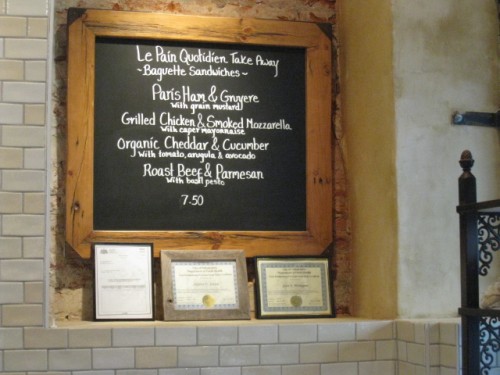 Le Pain Quotidien Take Away
~ Baguette Sandwiches ~
Paris Ham & Gruyere
with grain mustard
Grilled Chicken & Smoked Mozzarella
with caper mayonnaise
Organic Cheddar & Cucumber
with tomato, arugula & avocado
Roast Beef & Parmesan
with basil pesto
7.50